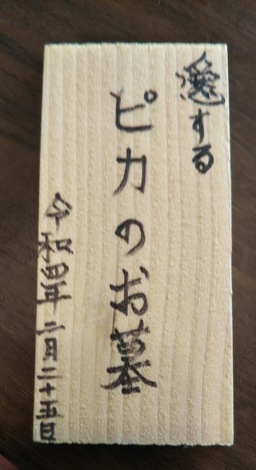 愛する
ピカのお墓
令和四年 二月二十五日